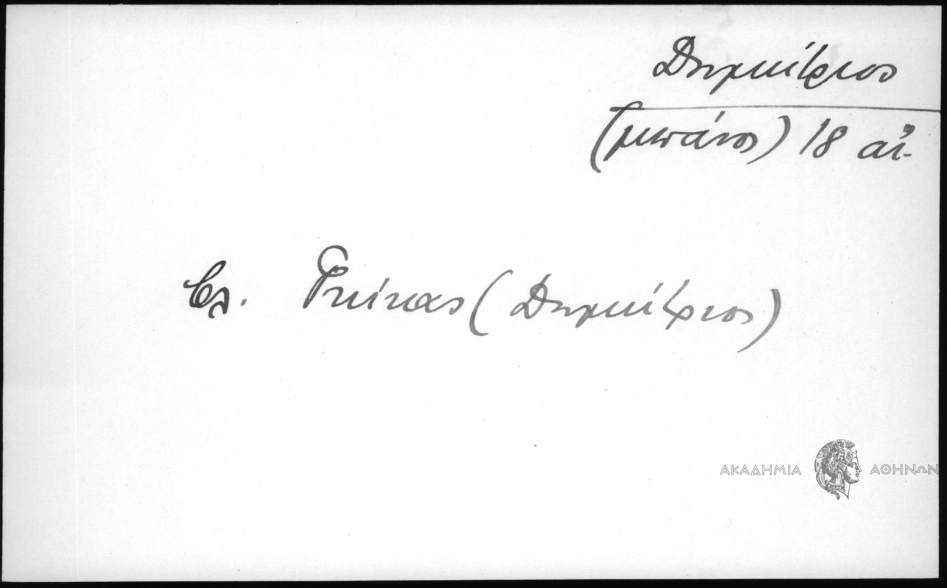 Δημήτριος
(μπάνος) 18 αἰ.
βλ. Γκίκας (Δημήτριος)
ΑΚΑΔΗΜΙΑ ΑΘΗΝΩΝ